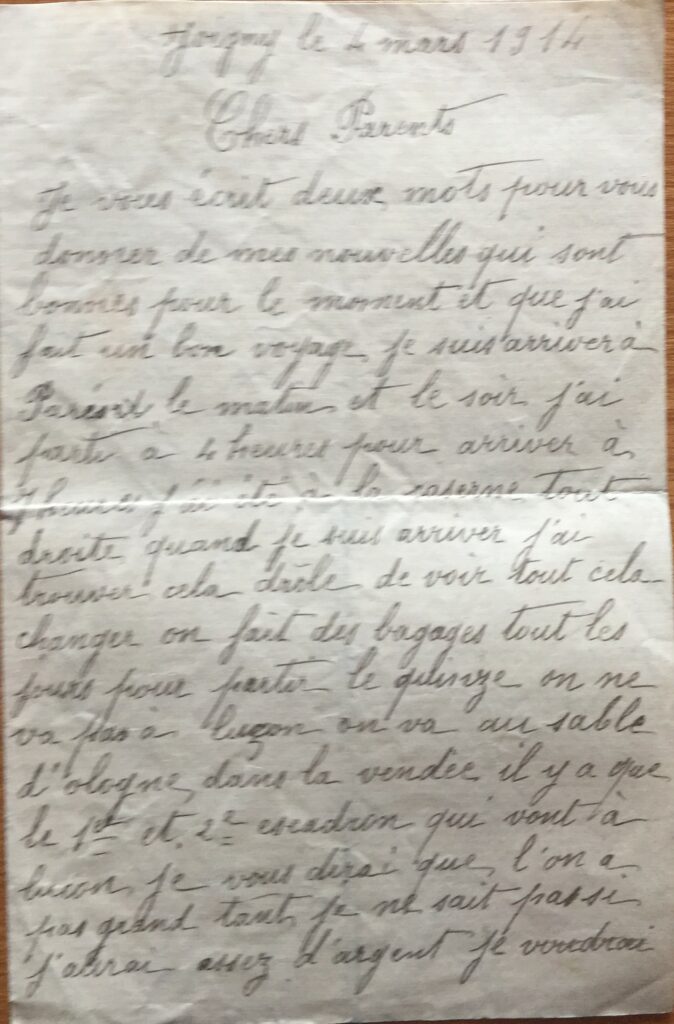 Joigny le 4 mars 1914
Chers Parents
Je vous écrit deux mots pour vous
donner de mes nouvelles qui sont
bonnes pour le moment et que j'ai
fait un bon voyage je suis arriver à
le matin et le soir j'ai
parti à 4 heures pour arriver à
7 heures j'ai été à la caserne tout
droite quand je suis arriver j'ai
trouver cela drôle de voir tout cela
changer on fait des bagages tout les
jours pour partir le quinze on ne
va pas à luçon on va au sable
d'ologne dans la vendée il y a que
le 1er et 2e escadron qui vont à
lucon je vous dirai que l'on a
pas grand tant je ne sait pas si
j'aurai assez d'argent je voudrai